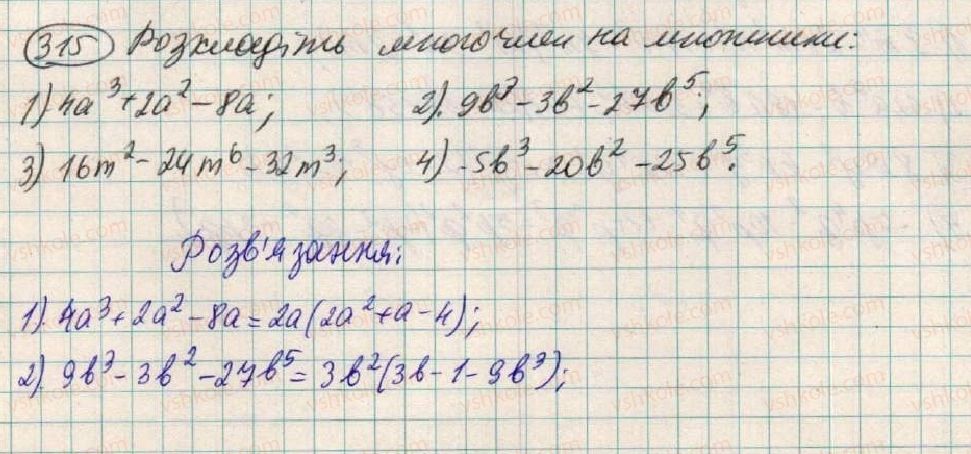 315 Розкладіть многочлен на множники:
1) 4a³+2a²-8a; 2). 9b³-3b²-27b⁵;
3) 16m²-24m⁶-32m³; 4) -5b³-20b²-25b⁵.
Розв'язання:
1). 4a³+2a²-8a=2a(2a²+a-4);
2). 9b³-3b²-27b⁵=3b²(3b-1-9b³);